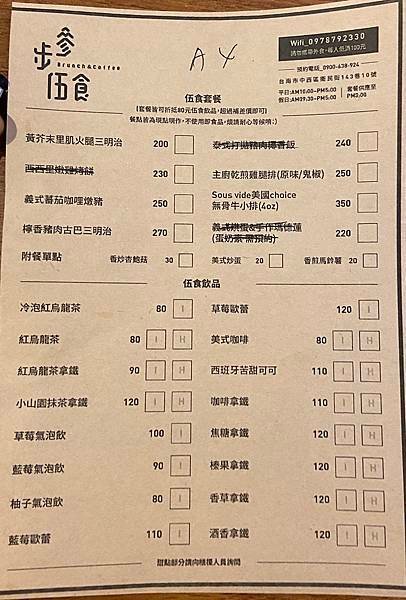 步參
Brunch&Coffee
伍食
A4
Wifi_0978792330
請勿攜帶外食，每人低消100元
預約電話_0900-638-924
台南市中西區衛民街143巷10號
平日:AM10:00-PM5:00 套餐供應至
假日:AM09:30-PM5:00 PM3:00
伍食套餐
(套餐皆可折抵80元伍食飲品，超過補差價即可)
餐點皆為現點現作，不使用即食品，煩請耐心等候唷：）
黃芥末里肌火腿三明治 200
泰式打拋豬肉椰香飯 240
西西里嫩雞烤餅 230
主廚乾煎雞腿排(原味/鬼椒) 250
義式蕃茄咖哩燉豬 250
Sous vide美國choice
無骨牛小排(4oz) 350
檸香豬肉古巴三明治 270
義式烘蛋&手作瑪德蓮
(蛋奶素 需預約) 220
附餐單點 香炒杏鮑菇 30 美式炒蛋 20 香煎馬鈴薯 20
伍食飲品
冷泡紅烏龍茶 80 I
草莓歐蕾 120 I
紅烏龍茶 80 I H
美式咖啡 80 I H
紅烏龍茶拿鐵 90 I H
西班牙苦甜可可 110 I H
小山園抹茶拿鐵 120 I H
咖啡拿鐵 110 I H
草莓氣泡飲 100 I
焦糖拿鐵 120 I H
藍莓氣泡飲 90 I
榛果拿鐵 120 I H
柚子氣泡飲 80 I
香草拿鐵 120 I H
藍莓歐蕾 110 I
酒香拿鐵 120 I H
甜點部分請向櫃檯人員詢問